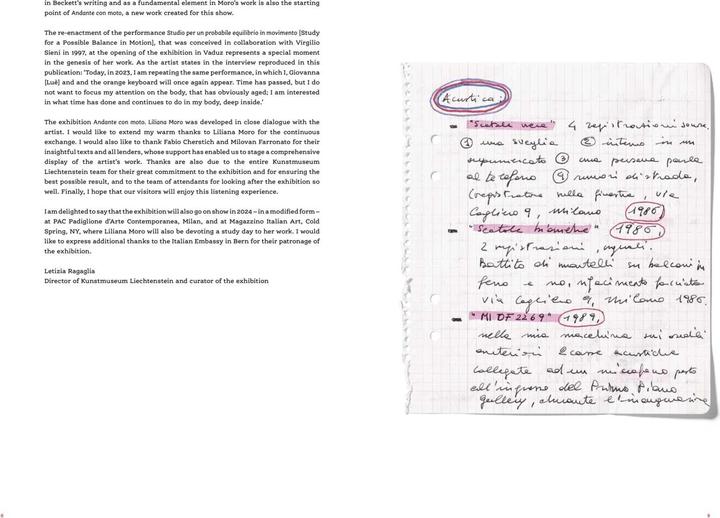 in Beckett's writing and as a fundamental element in Moro's work is also the starting
point of Andante con moto, a new work created for this show.
The re-enactment of the performance Studio per un probabile equilibrio in movimento [Study
for a Possible Balance in Motion], that was conceived in collaboration with Virgilio
Sieni in 1997, at the opening of the exhibition in Vaduz represents a special moment
in the genesis of her work. As the artist states in the interview reproduced in this
publication: 'Today, in 2023, I am repeating the same performance, in which I, Giovanna
[Luè] and and the orange keyboard will once again appear. Time has passed, but I do
not want to focus my attention on the body, that has obviously aged; I am interested
in what time has done and continues to do in my body, deep inside.'
The exhibition Andante con moto. Liliana Moro was developed in close dialogue with the
artist. I would like to extend my warm thanks to Liliana Moro for the continuous
exchange. I would also like to thank Fabio Cherstich and Milovan Farronato for their
insightful texts and all lenders, whose support has enabled us to stage a comprehensive
display of the artist's work. Thanks are also due to the entire Kunstmuseum
Liechtenstein team for their great commitment to the exhibition and for ensuring the
best possible result, and to the team of attendants for looking after the exhibition so
well. Finally, I hope that our visitors will enjoy this listening experience.
I am delighted to say that the exhibition will also go on show in 2024 – in a modified form –
at PAC Padiglione d'Arte Contemporanea, Milan, and at Magazzino Italian Art, Cold
Spring, NY, where Liliana Moro will also be devoting a study day to her work. I would
like to express additional thanks to the Italian Embassy in Bern for their patronage of
the exhibition.
Letizia Ragaglia
Director of Kunstmuseum Liechtenstein and curator of the exhibition
Acustica:
- "Scatole nere" 4 registrazioni sonore.
① una sveglia ② interno in un
supermercato ③ una persona parla
al telefono ④ rumori di strada,
(registratore nella finestra, via
Cagliero 9, Milano 1986)
- "Scatole bianche" 1986,
2 registrazioni, uguali.
Battito di martelli su balconi in
ferro e no, rifacimento facciata
via Cagliero 9, Milano 1986.
- "MI DF 2269" 1989,
nella mia macchina sui sedili
anteriori 2 casse acustiche
collegate ad un microfono posto
all'ingresso del Primo Piano
gallery, durante l'inaugurazione